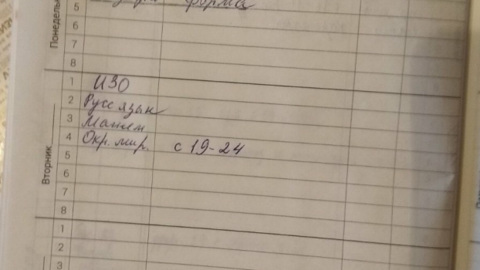 Понедельн
5 форма
6
7
8
Вторник
1 ИЗО
2 Русс язык
3 Матем
4 Окр. мир. с 19-24
5
6
7
8
1
2
3